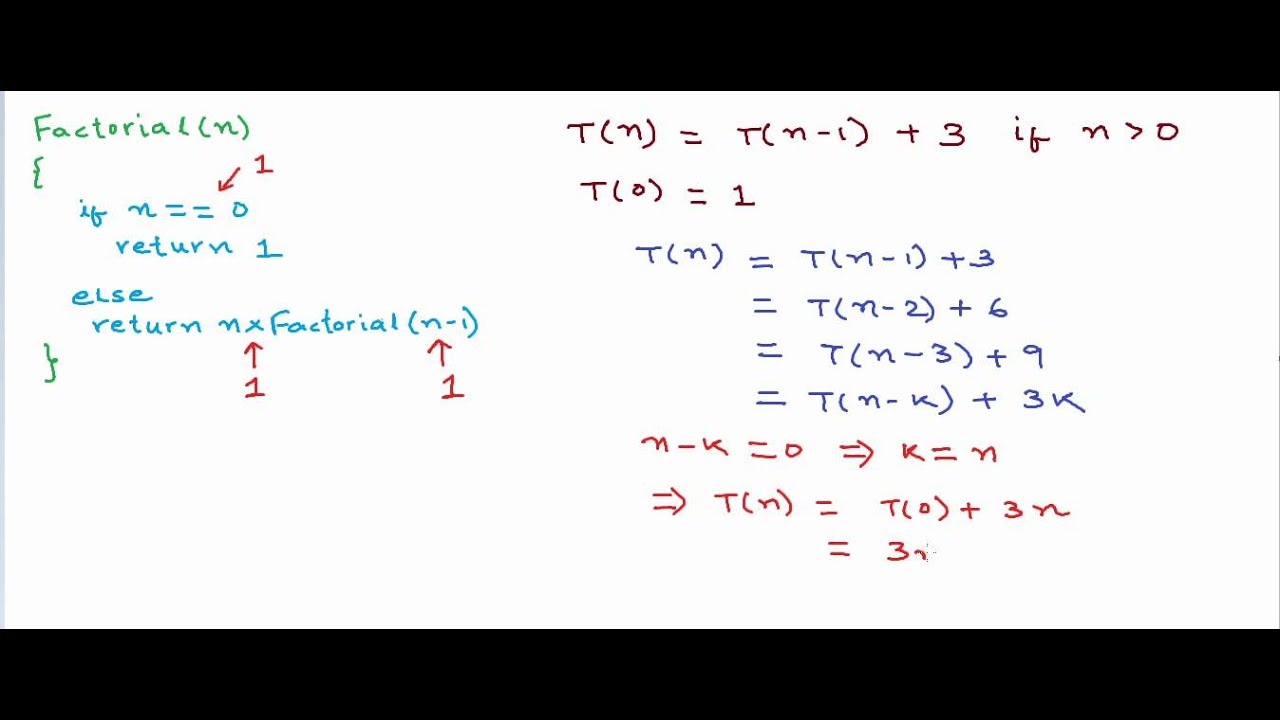 Factorial(n)
{
1
if n == 0
return 1
else
return n×Factorial(n-1)
1 1
}
T(n) = T(n-1) + 3 if n > 0
T(0) = 1
T(n) = T(n-1) + 3
= T(n-2) + 6
= T(n-3) + 9
= T(n-k) + 3k
n-k = 0 ⇒ k = n
⇒ T(n) = T(0) + 3n
= 3